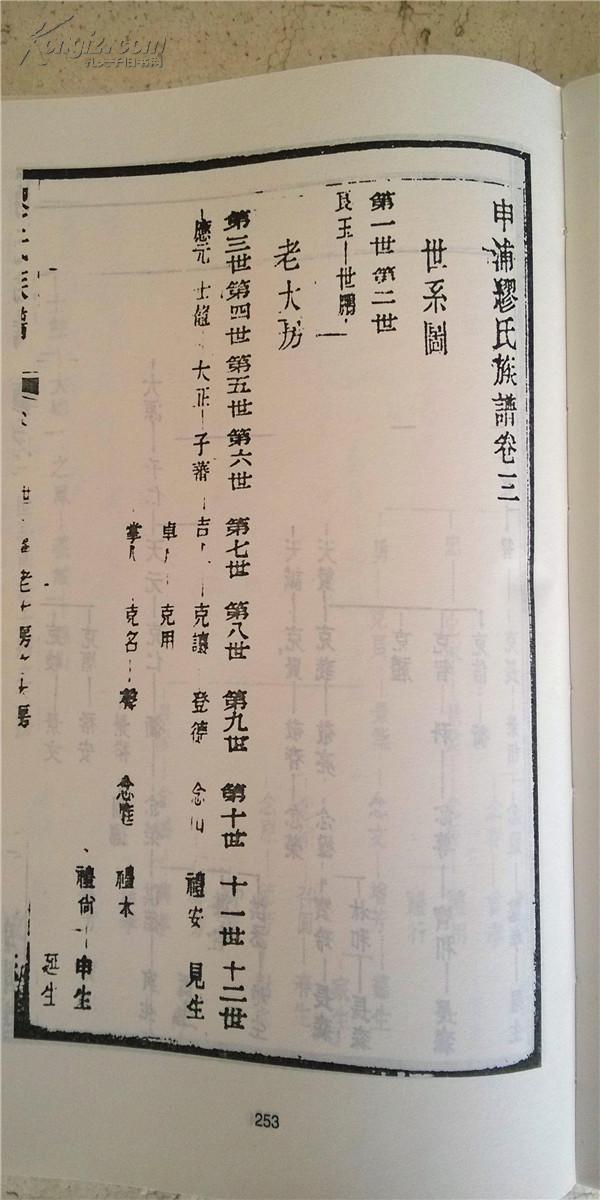 Kongfz.com
孔夫子旧书网
申浦繆氏族譜卷三
世系圖
第一世 第二世
良玉 世
老大房
第三世 第四世 第五世 第六世 第七世 第八世 第九世 第十世 十一世 十二世
應元 士 大正 子蕃 吉 克讓 登德 念 禮安 見生
卓 克用
掌 克名 念 禮本
禮尚 申生
延生
氏族譜 世 老大房
253